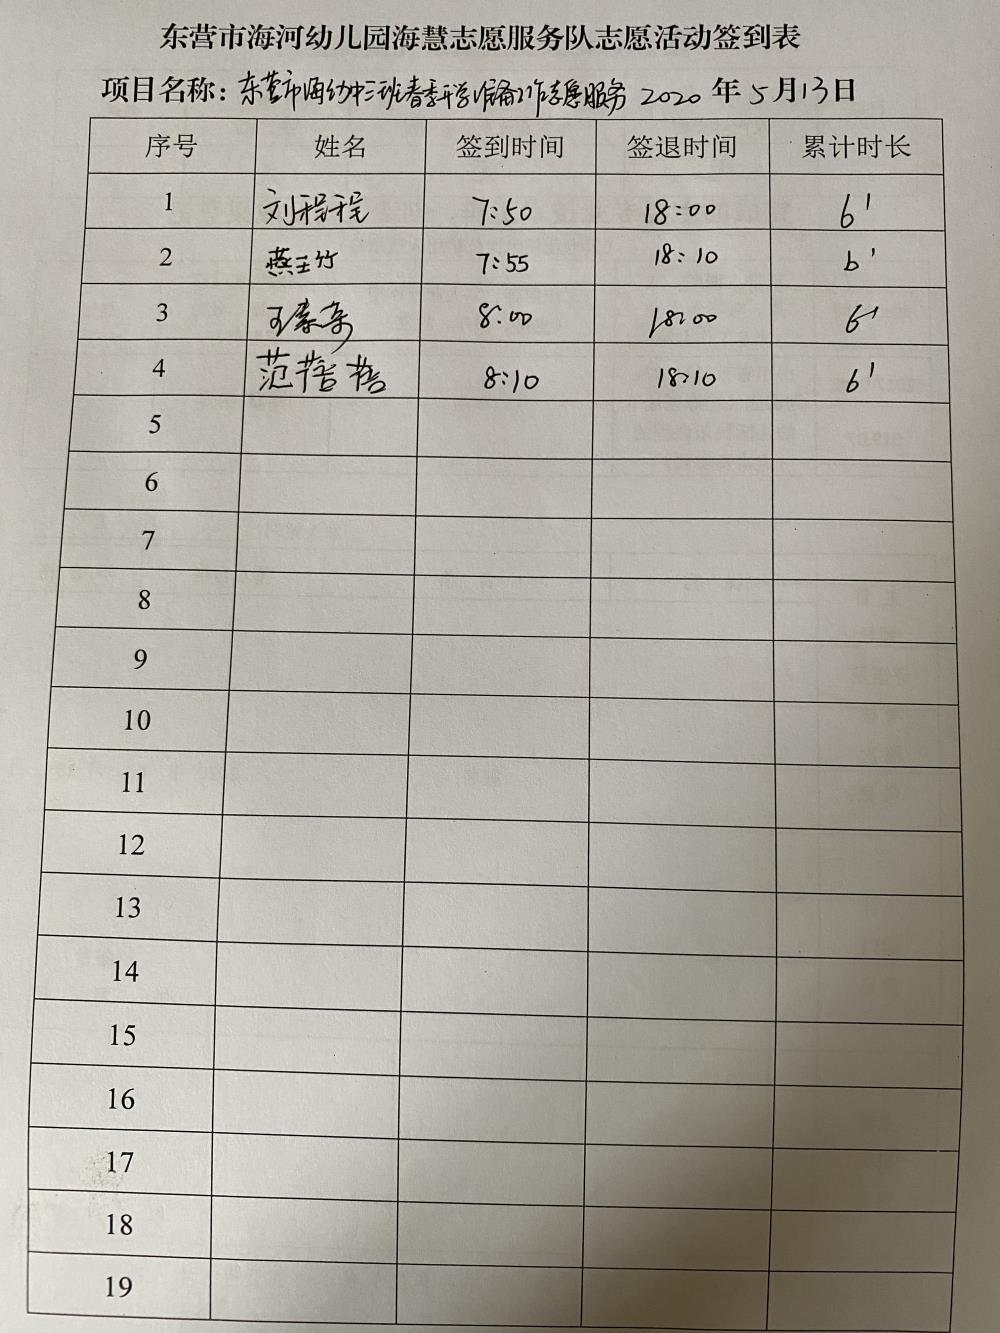 东营市海河幼儿园海慧志愿服务队志愿活动签到表
项目名称：东营市海幼中三班春季开学准备工作志愿服务 2020 年 5 月 13 日
序号 姓名 签到时间 签退时间 累计时长
1 刘程程 7:50 18:00 6'
2 燕玉竹 7:55 18:10 6'
3 王 8:00 18:00 6'
4 范蓓蓓 8:10 18:10 6'
5
6
7
8
9
10
11
12
13
14
15
16
17
18
19